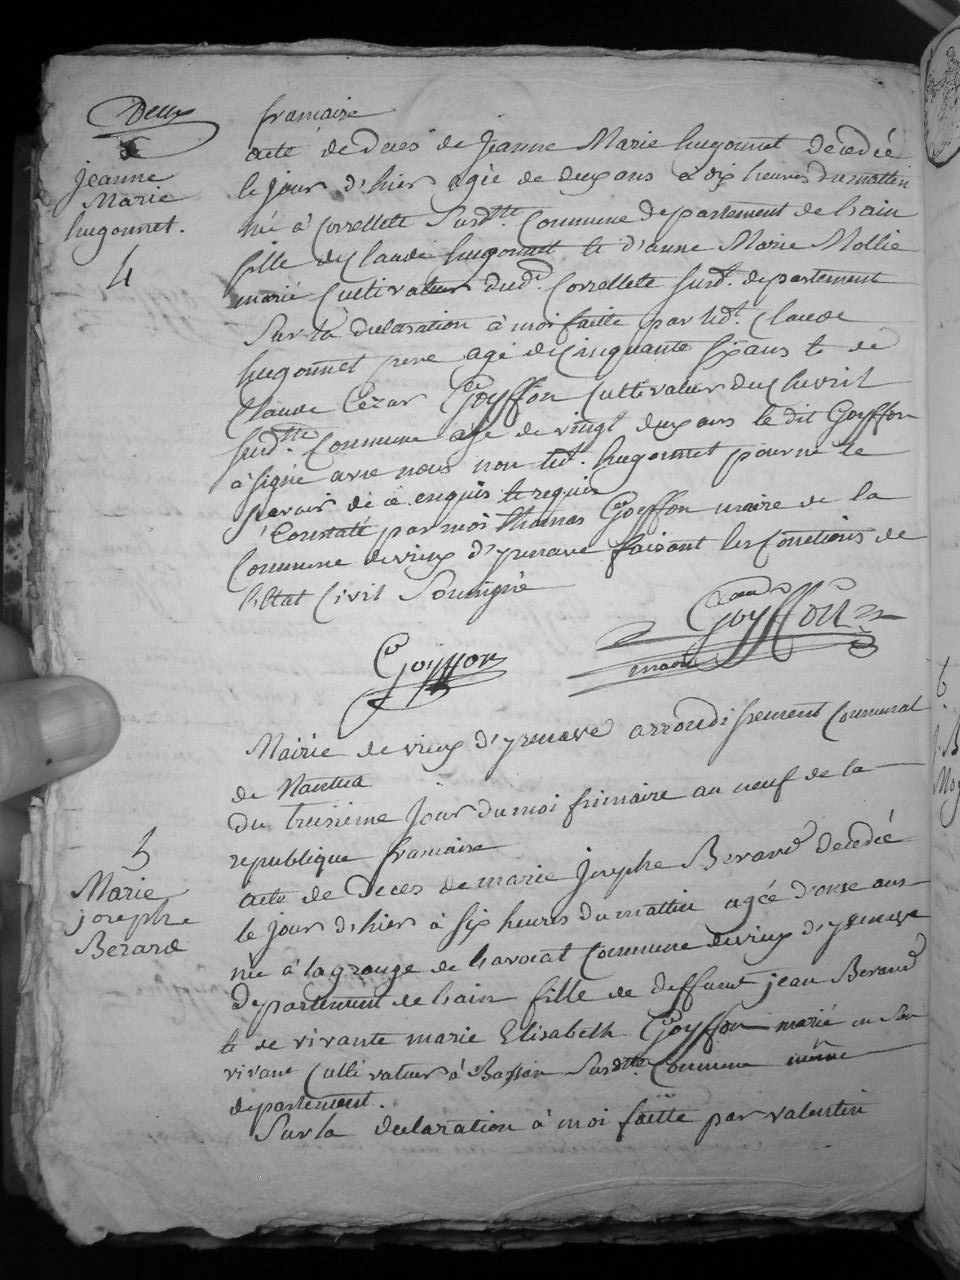 Deux
de
Jeanne
Marie
hugonnet.
4
francaise
acte de deces de Jeanne Marie hugonnet decedée
le jour d'hier agée de deux ans à dix heures du mattin
née à Correllete susdtte. Commune departement de lain
fille de Claude hugonnet et d'anne Marie Mollie
marié Cultivateur dud. Correllete susd. departement
Sur la declaration à moi faitte par led. Claude
hugonnet pere agé de Cinquante six ans et de
Claude Cézar Goyffon Cultivateur du Chevril
susdtte. Commune agé de vingt deux ans le dit Goyffon
à signé avec nous non led. hugonnet pour ne le
scavoir de ce enquis et requis
Constaté par moi thomas Goyffon maire de la
Commune de vieux d'yzenave faisant les fonctions de
l'Etat Civil Soussigné
Goyffon
Goyffon
maire
Mairie de vieux d'yzenave arrondissement Communal
de Nantua
Du treisieme Jour du moi frimaire an neuf de la
republique francaise
5
Marie
josephe
Berard
acte de Deces de marie josephe Berard decedée
le jour d'hier à six heures du mattin agée d'onse ans
née à lagrange de lavocat Commune de vieux d'yzenave
Departement de lain fille de deffunt jean Berard
et de vivante marie Elisabeth Goyffon marié en son
vivant Cultivateur à Susdtte Commune même
departement.
Sur la declaration à moi faitte par valentin